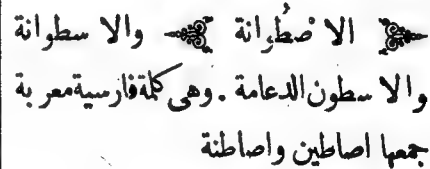 الاصْطُرانة والاسطوانة
والاسطون الدعامة . وهي كلمة فارسية معربة
جمعها اصاطين واصاطنة